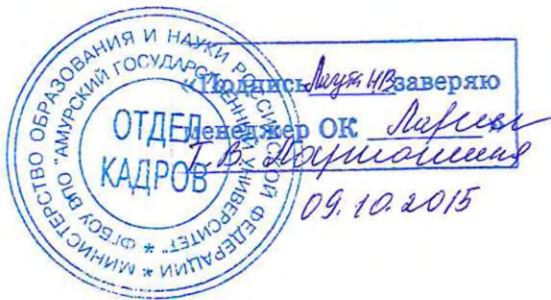 МИНИСТЕРСТВО ОБРАЗОВАНИЯ И НАУКИ РОССИЙСКОЙ ФЕДЕРАЦИИ *
ФГБОУ ВПО "АМУРСКИЙ ГОСУДАРСТВЕННЫЙ УНИВЕРСИТЕТ" *
ОТДЕЛ
КАДРОВ
«Подпись НВ заверяю
менеджер ОК
Т. В.
09.10.2015